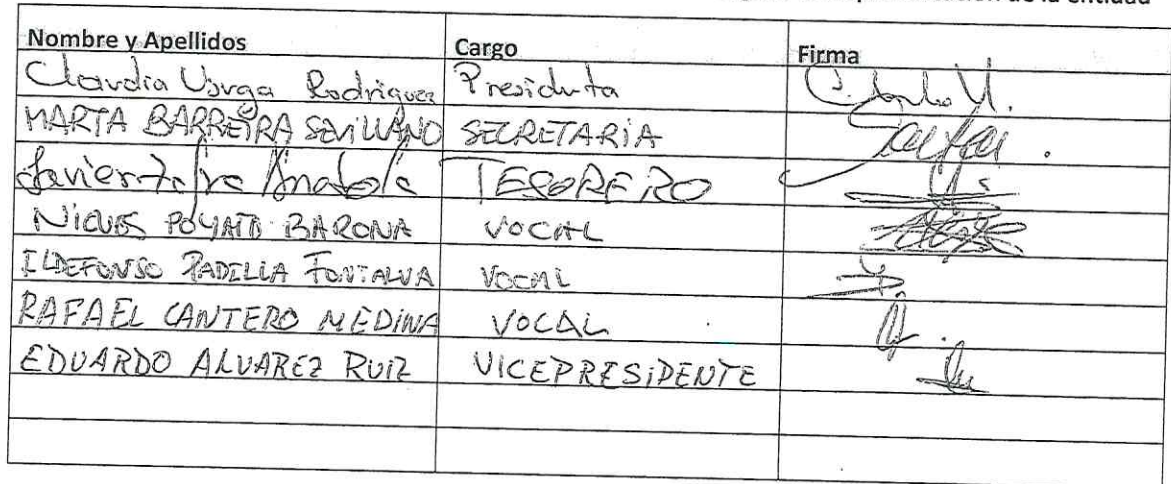 de la entidad
Nombre y Apellidos Cargo Firma
Claudia Vurga Rodriguez Presiduta
MARTA BARREIRA SEVILLANO SECRETARIA
Javier TESORERO
POYATO BARONA VOCAL
ILDEFONSO PADILLA FONTALVA VOCAL
RAFAEL CANTERO MEDINA VOCAL
EDUARDO ALVAREZ RUIZ VICEPRESIDENTE